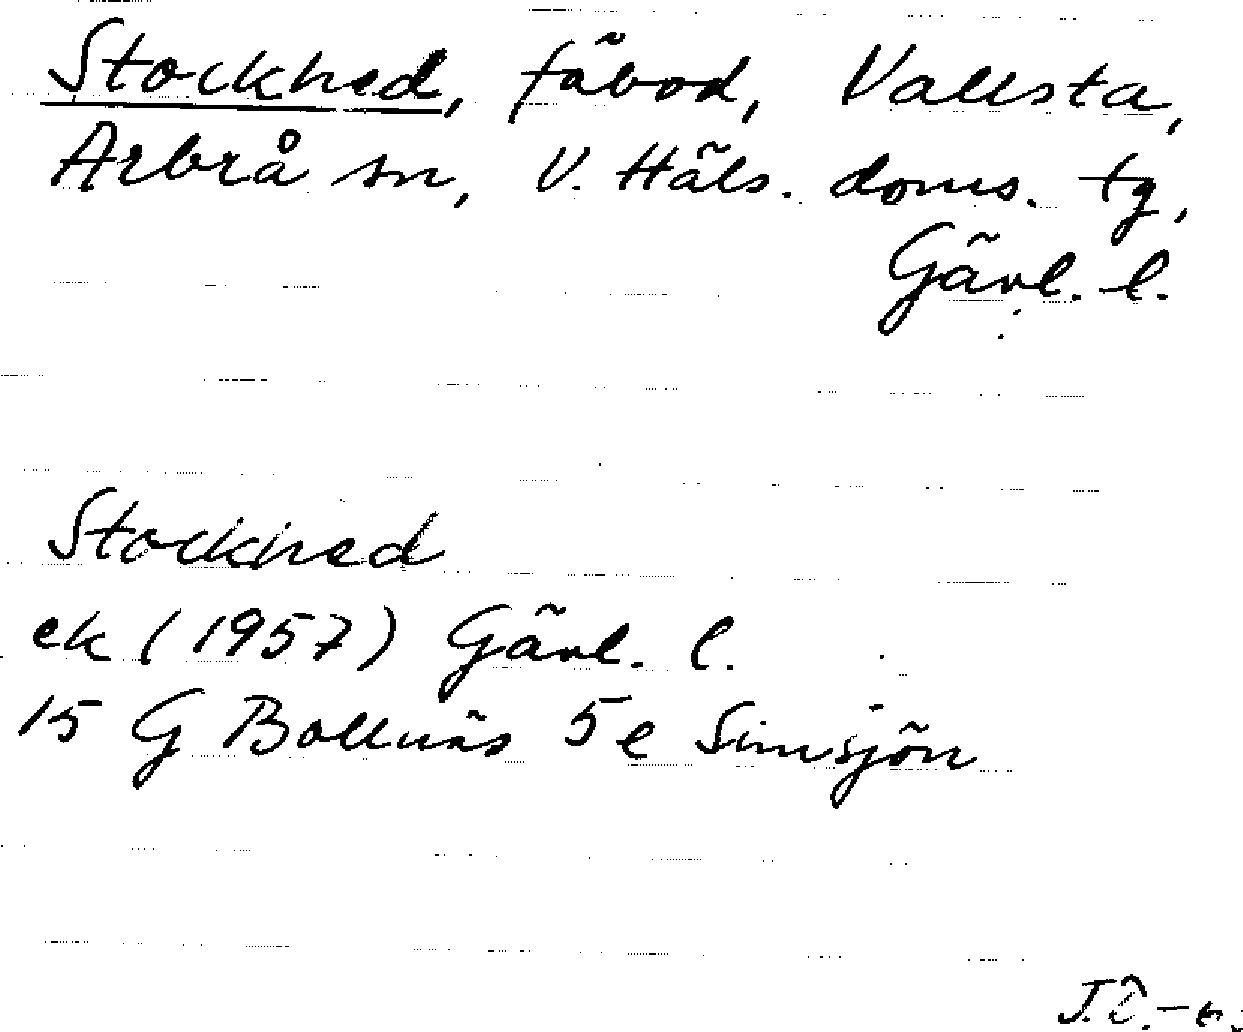 Stockhed, fäbod, Vallsta,
Arbrå sn, V. Häls. doms. tg,
Gävl. l.
Stockhed
ek (1957) Gävl. l.
15 G Bollnäs 5e Simsjön